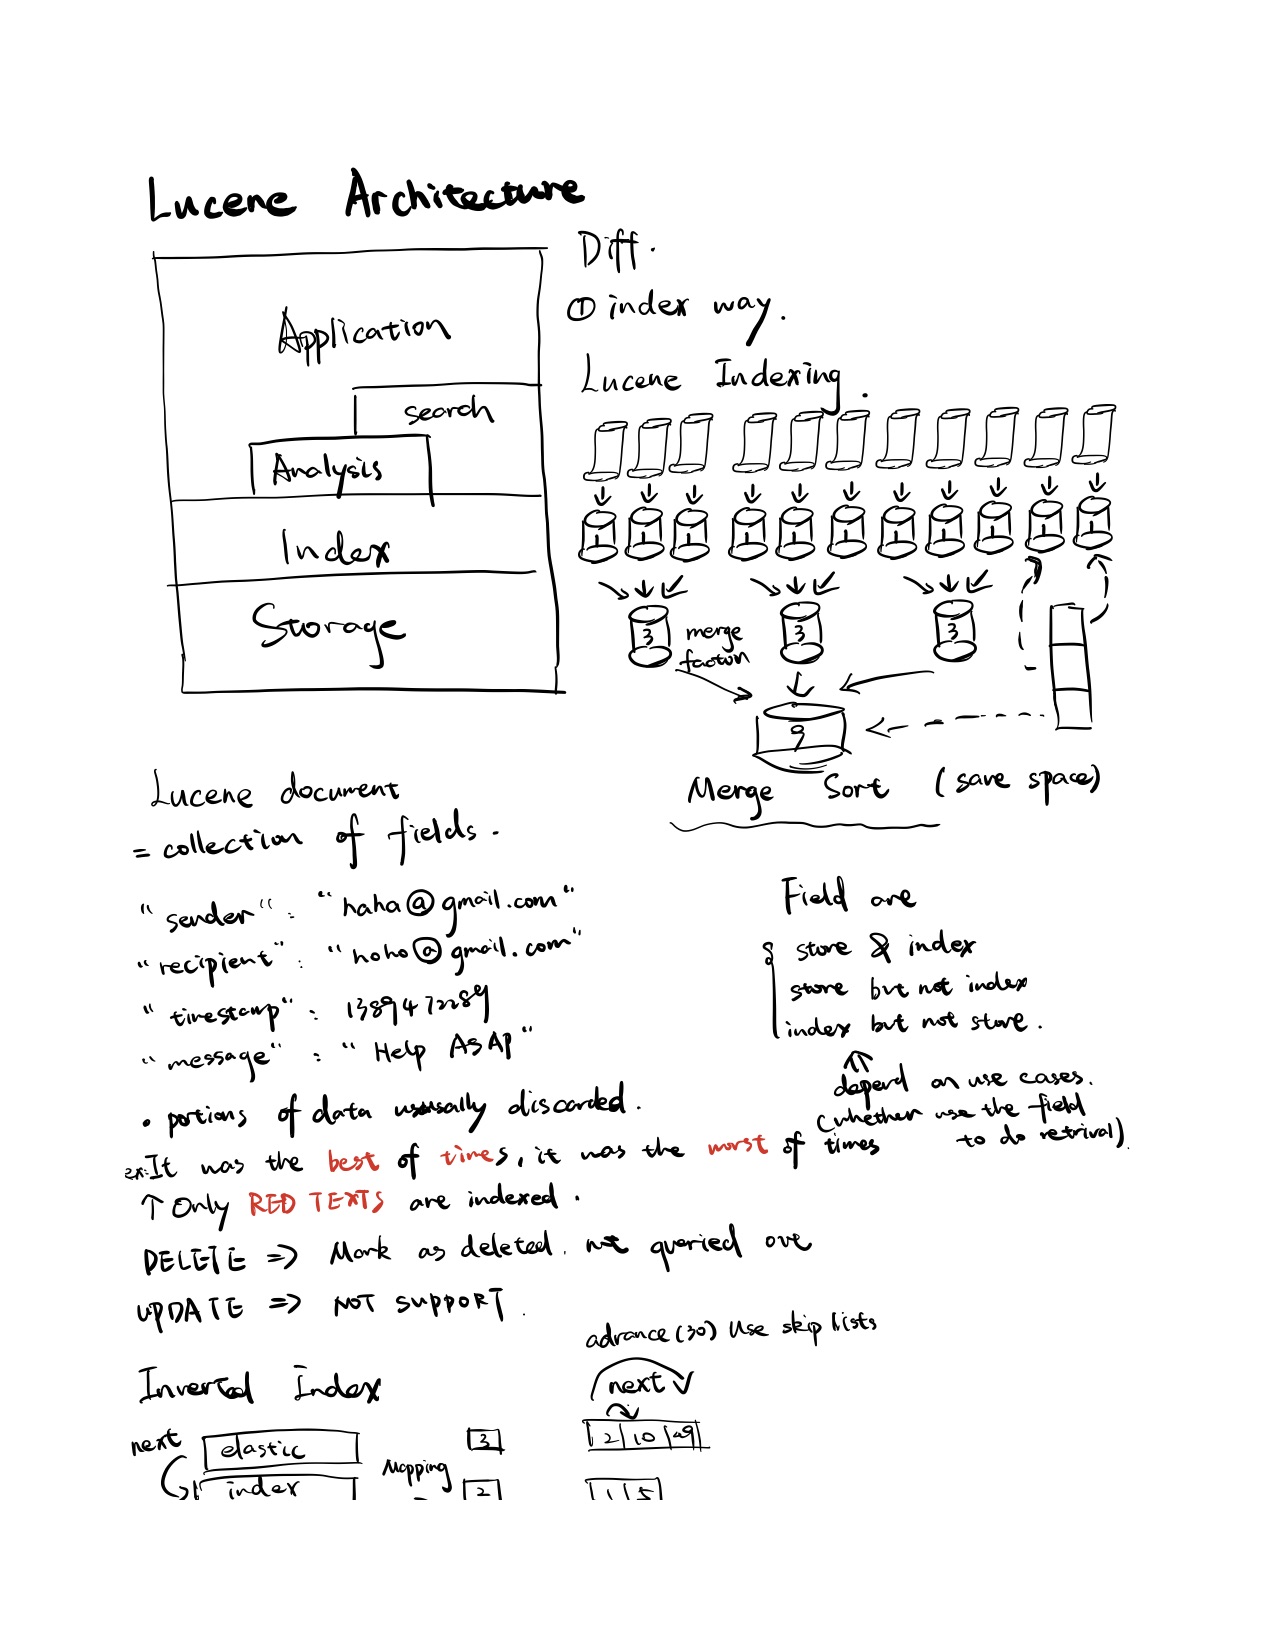 Lucene Architecture
Application
search
Analysis
Index
Storage
Diff.
① index way.
Lucene Indexing.
1 1 1 1 1 1 1 1 1 1 1
3 3 3
merge
9
Merge Sort (save space)
Lucene document
= collection of fields.
"sender": "haha@gmail.com"
"recipient": "hoho@gmail.com"
"timestamp": 1389472289
"message": "Help ASAP"
Field are
store & index
store but not index
index but not store.
⇑
depend on use cases.
(whether use the field
to do retrival)
• portions of data ususally discarded.
ex: It was the best of times, it was the worst of times
↑ Only RED TEXTS are indexed.
DELETE => Mark as deleted. not queried ove
UPDATE => NOT SUPPORT.
Inverted Index
next
elastic
index
Mapping
3
2
advance(30) Use skip lists
next
2 | 10 | 29
1 | 5